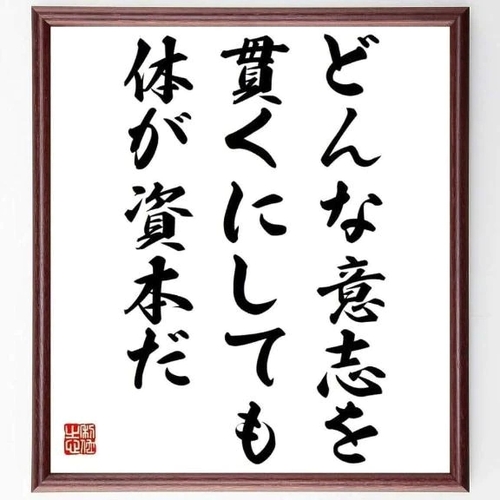 どんな意志を
貫くにしても
体が資本だ